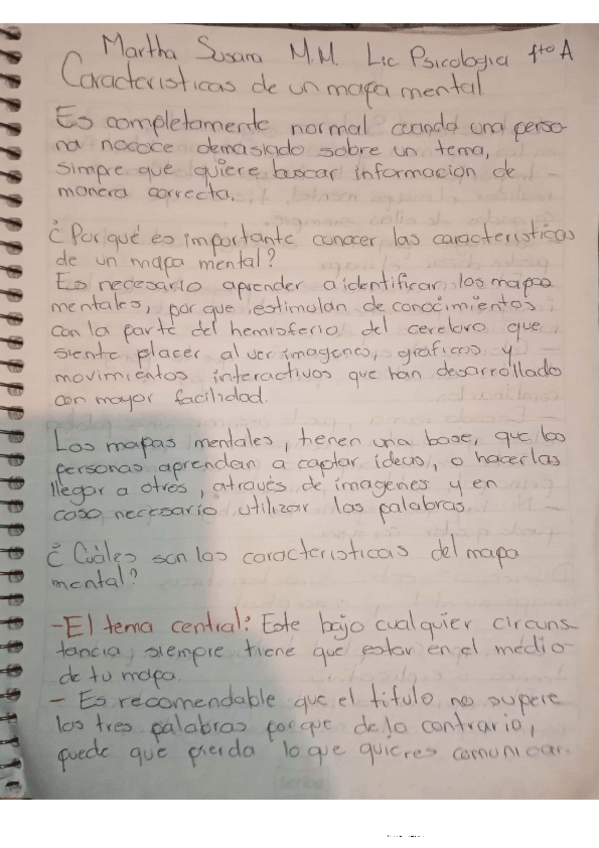 Martha Susana M.M. Lic Psicologia 1to A
Caracteristicas de un mapa mental
Es completamente normal cuando una perso-
na nococe demasiado sobre un tema,
simpre que quiere buscar informacion de
manera correcta.
¿Por qué es importante conocer las caracteristicas
de un mapa mental?
Es necesario aprender a identificar los mapas
mentales, por que estimulan de conocimientos
con la parte del hemisferio del cerebro que
siente placer al ver imagenes, graficas y
movimientos interactivos que han desarrollado
con mayor facilidad.
Los mapas mentales, tienen una base, que las
personas aprendan a captar ideas, o hacerlas
llegar a otros, através de imagenes y en
caso necesario utilizar las palabras.
¿Cuáles son las caracteristicas del mapa
mental?
-El tema central: Este bajo cualquier circuns-
tancia, siempre tiene que estar en el medio
de tu mapa.
- Es recomendable que el titulo no supere
las tres palabras por que de lo contrario,
puede que pierda lo que quieres comunicar.